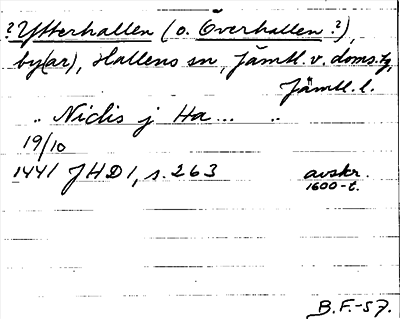 ? Ytterhallen (o. Överhallen ?),
by(ar), Hallens sn, Jämtl. v. doms.,
Jämtl. l.
„ Niclis j Ha... „
19/10
1441 JHD 1, s. 263 avskr.
1600-t.
B.F.-57.